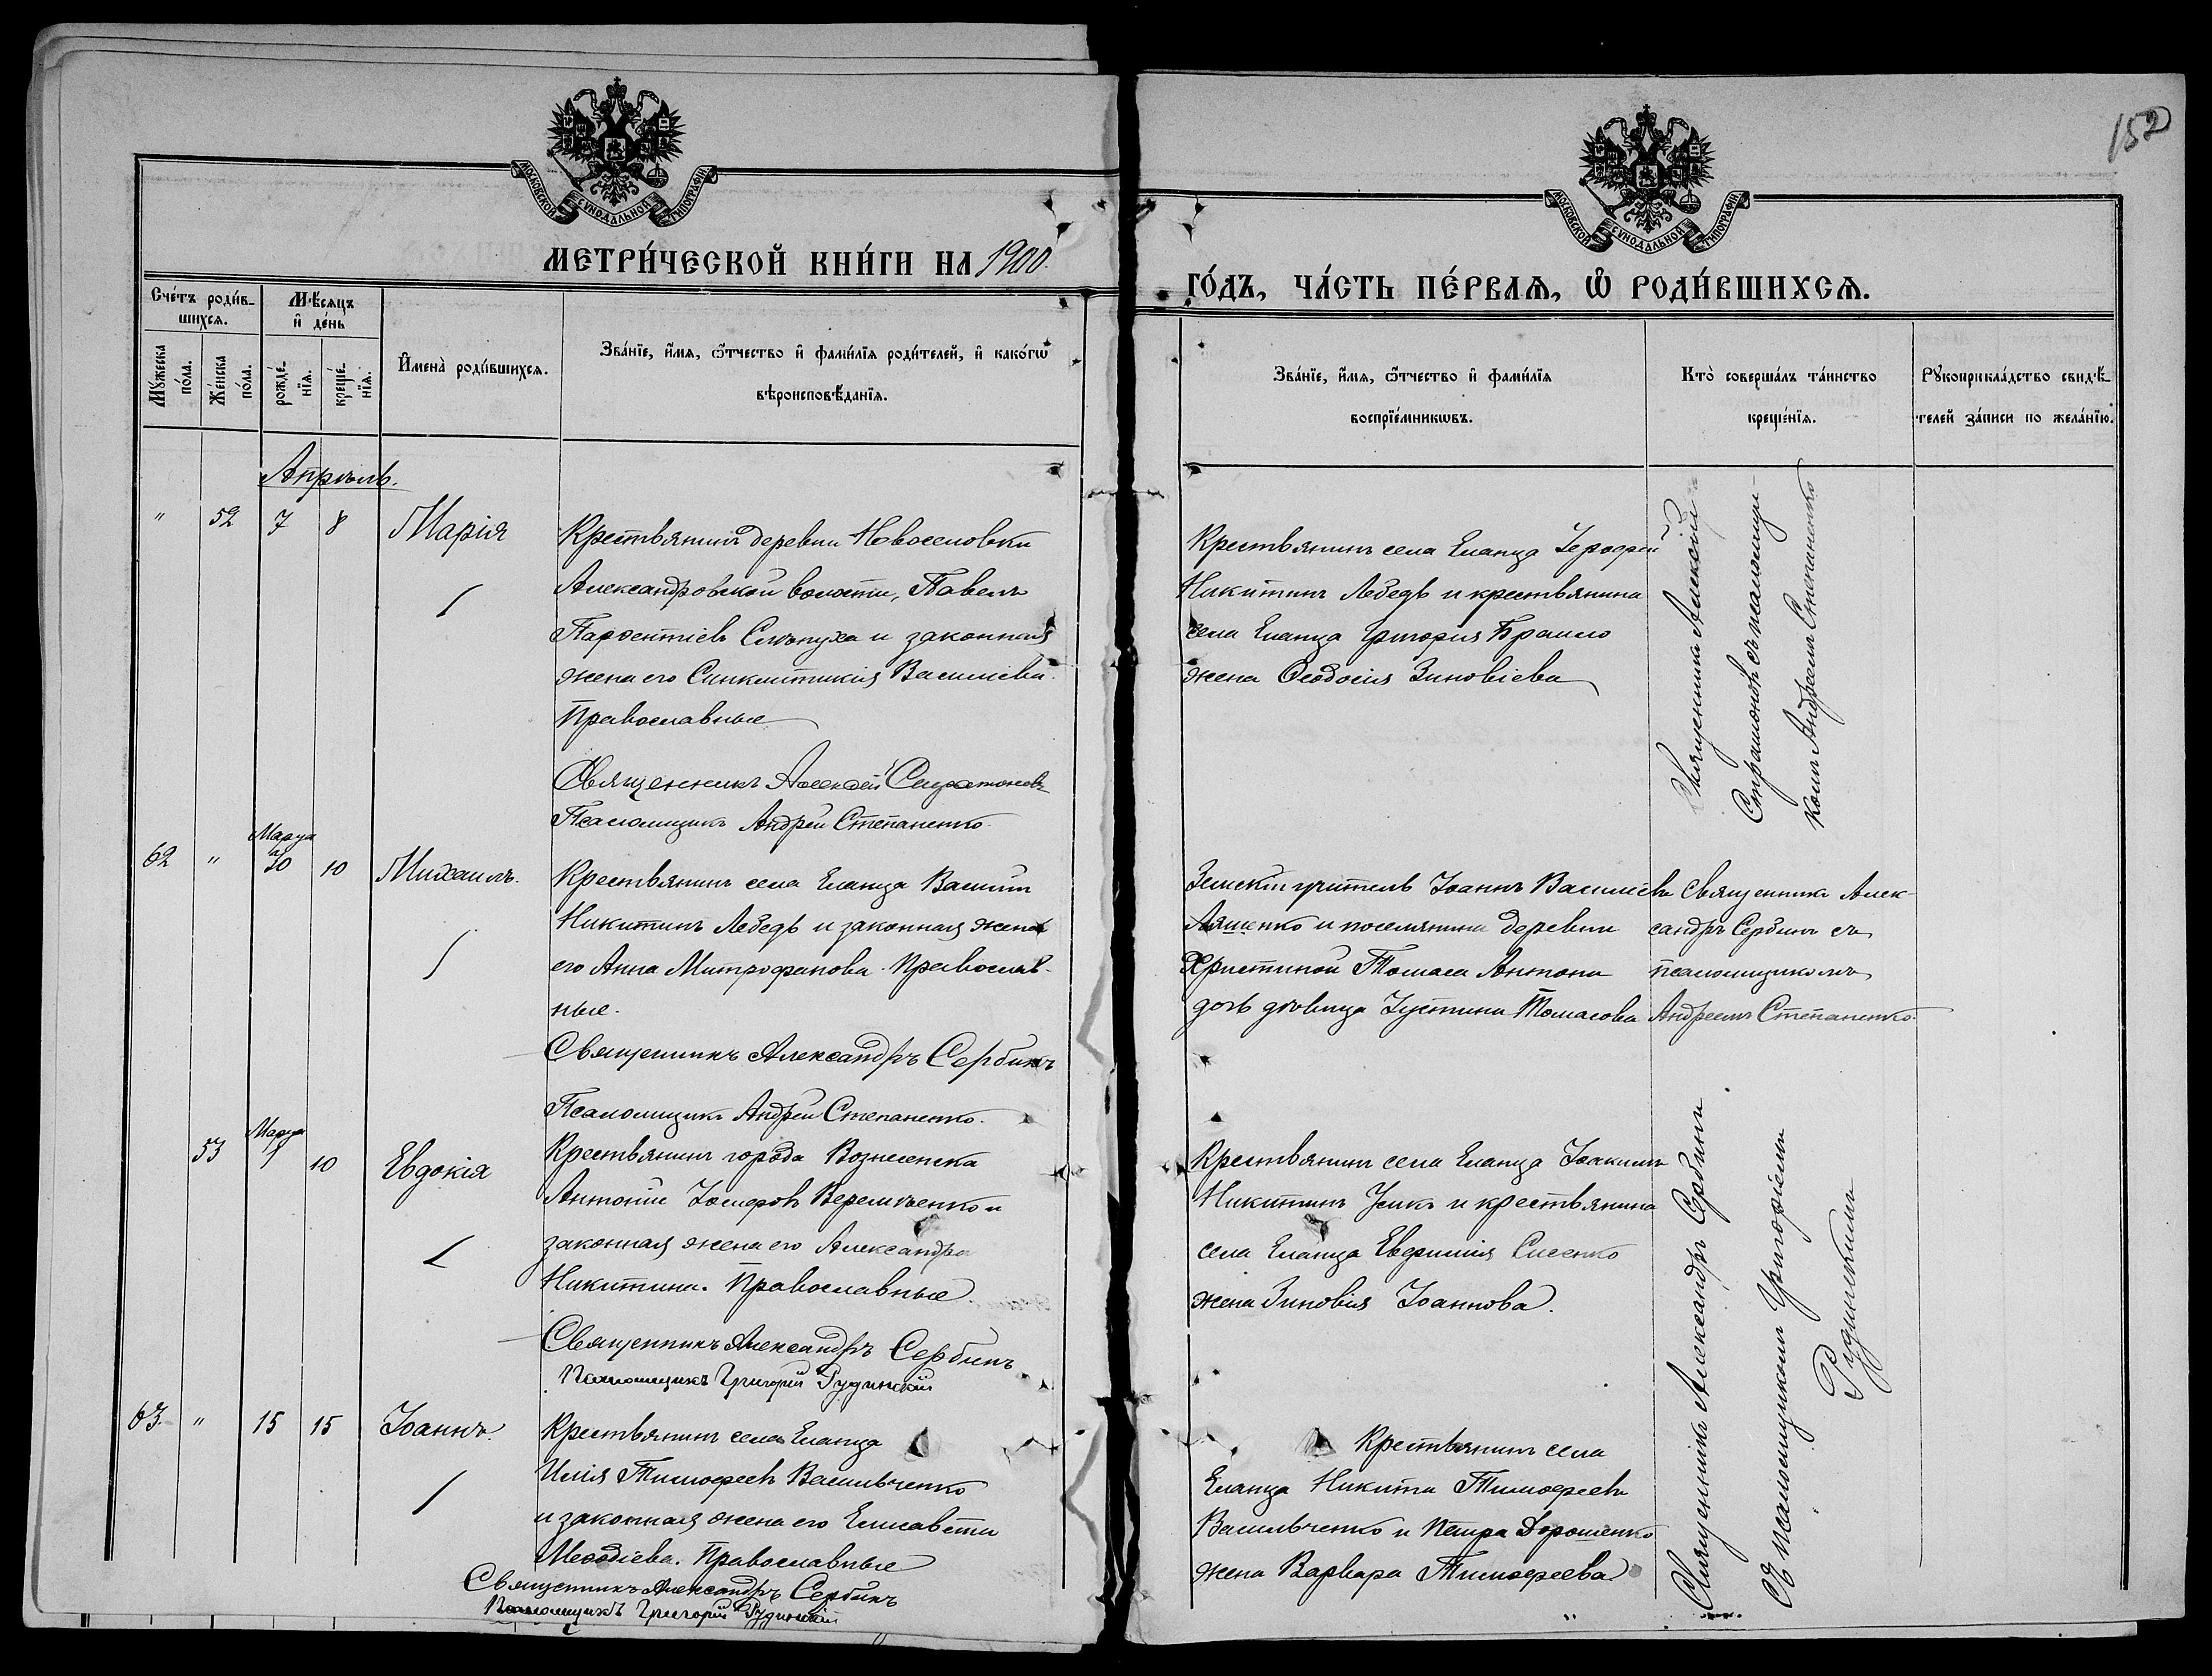 152
МОСКОВСКОЙ СУНОДАЛЬНОЙ ТИПОГРАФІИ
МОСКОВСКОЙ СУНОДАЛЬНОЙ ТИПОГРАФІИ
МЕТРИ́ЧЕСКОЙ КНИ́ГИ НА 1900
ГО́ДЪ, ЧА́СТЬ ПЕ́РВАѦ, Ѽ РОДИ́ВШИХСѦ.
Сче́тъ роди́в-
шихсѧ.
Мѣ́сяцъ
и҆ де́нь
Мꙋ́жеска
по́ла.
Же́нска
по́ла.
рожде́-
нїѧ.
креще́-
нїѧ.
И҆мена̀ роди́вшихсѧ.
Зва́нїе, и҆́мѧ, ѻ҆́тчество и҆ фами́лїѧ роди́телей, и҆ како́гѡ
вѣроисповѣ́данїѧ.
Зва́нїе, и҆́мѧ, ѻ҆́тчество и҆ фами́лїѧ
воспрїе́мникѡвъ.
Кто̀ соверша́лъ та́инство
креще́нїѧ.
Рꙋкоприкла́дство свидѣ́-
телей за́писи по жела́нїю.
Апрѣль.
" 52 7 8 Марія
Крестьянинъ деревни Новоселовки
Александровской волости, Павелъ
Парѳентіевъ и законная
жена его Синклитикія Василіева.
Православные
Священникъ Алексѣй Страмоновъ
Псаломщикъ Андрей Степаненко.
Крестьянинъ села Еланца Іерофей
Никитинъ Лебедь и крестьянина
села Еланца Григорія
жена Ѳеодосія Зиновіева
Священникъ Алексѣй
Страмоновъ съ псаломщи-
комъ Андреемъ Степаненко
Марта
62 " 30 10 Михаилъ.
Крестьянинъ села Еланца Василій
Никитинъ Лебедь и законная жена
его Анна Митрофанова. Православ-
ные.
Священникъ Александръ Сербинъ
Псаломщикъ Андрей Степаненко.
Земскій учитель Іоаннъ Василіевъ
Ляшенко и поселянина деревни
Христиной Томаса Антони
дочь дѣвица Іустина Томасова
Священникъ Алек-
сандръ Сербинъ съ
псаломщикомъ
Андреемъ Степаненко.
Марта
53 1 10 Евдокія
Крестьянинъ города Вознесенска
Антоній Іосифовъ Веремѣенко и
законная жена его Александра
Никитина. Православные.
Священникъ Александръ Сербинъ
Псаломщикъ Григорій Рудинскій
Крестьянинъ села Еланца Іоакимъ
Никитинъ Усикъ и крестьянина
села Еланца Евфимія
жена Зиновія Іоаннова.
63 " 15 15 Іоаннъ.
Крестьянинъ села Еланца
Илія Тимофеевъ Васильченко
и законная жена его Елисавета
Меѳодіева. Православные
Священникъ Александръ Сербинъ
Псаломщикъ Григорій Рудинскій
Крестьянинъ села
Еланца Никита Тимофеевъ
Васильченко и Петра Дорошенко
жена Варвара Тимофеева
Священникъ Александръ Сербинъ
съ псаломщикомъ Григоріемъ
Рудинскимъ